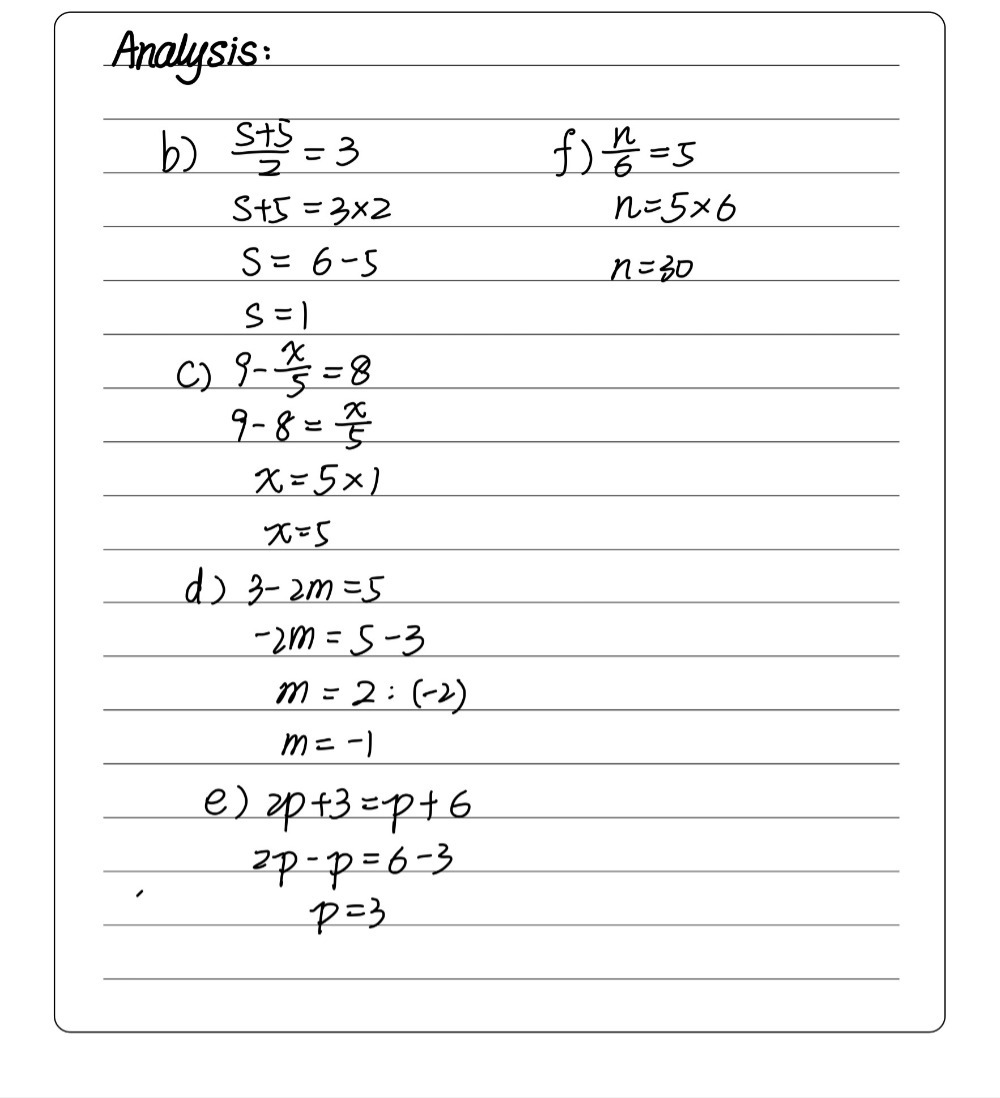 Analysis:
b) (s+5)/2 = 3
s+5 = 3×2
s = 6-5
s = 1
c) 9 - x/5 = 8
9-8 = x/5
x = 5×1
x=5
d) 3-2m = 5
-2m = 5-3
m = 2 : (-2)
m = -1
e) 2p+3 = p+6
2p-p = 6-3
p=3
f) n/6 = 5
n=5×6
n=30